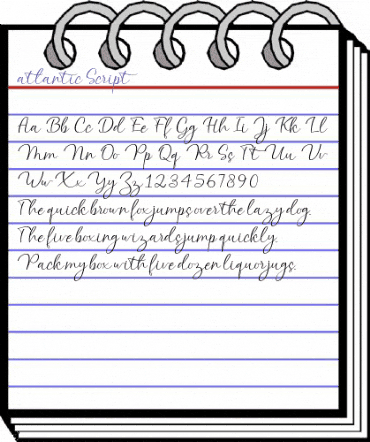 atlantic Script
Aa Bb Cc Dd Ee Ff Gg Hh Ii Jj Kk Ll
Mm Nn Oo Pp Qq Rr Ss Tt Uu Vv
Ww Xx Yy Zz 1234567890
The quick brown fox jumps over the lazy dog.
The five boxing wizards jump quickly.
Pack my box with five dozen liquor jugs.